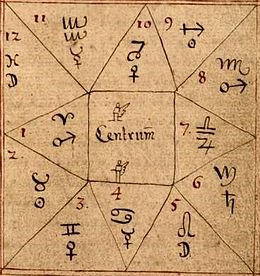 11 ♒
10 ♑ ♀
9 ♐
12 ♓ ☽
8 ♏ ♂
1 ♈ ♂
Centrum
7. ♎ ♃
2. ♉
3. ♊ ♀
4 ♋ ☿
5 ♌ ☽
6 ♍ ♄